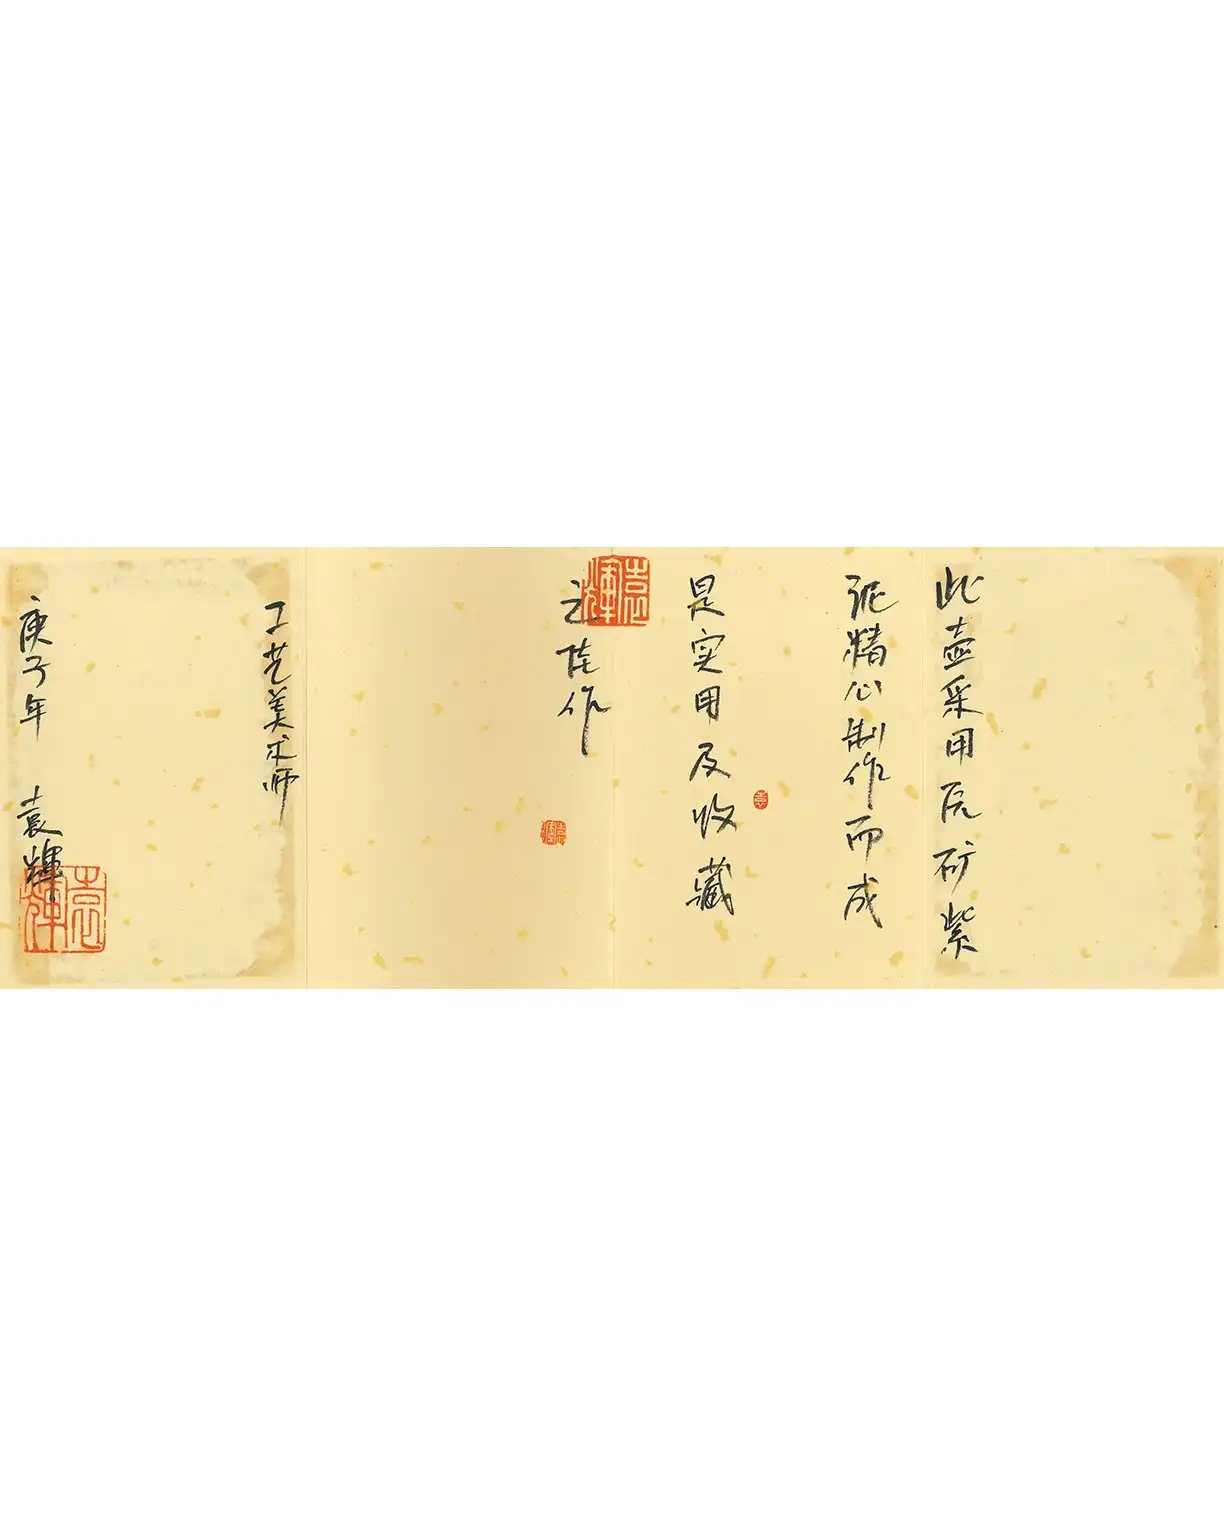 此壶采用原矿紫
泥精心制作而成
是实用及收藏
之佳作
工艺美术师
庚子年 袁輝
袁輝
袁
袁輝
袁輝